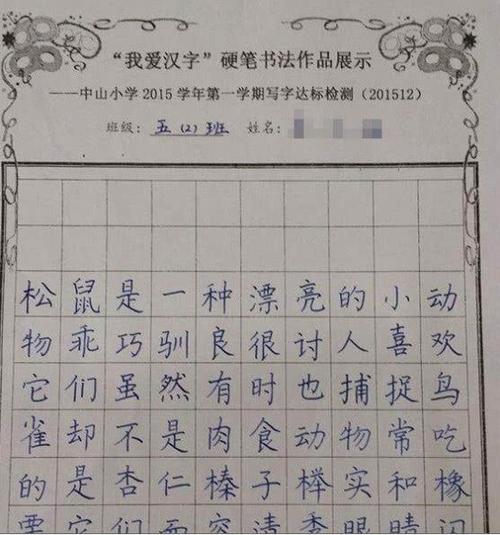 “我爱汉字”硬笔书法作品展示
——中山小学 2015 学年第一学期写字达标检测（201512）
班级：五（2）班 姓名：
松鼠是一种漂亮的小动
物乖巧驯良很讨人喜欢
它们虽然有时也捕捉鸟
雀却不是肉食动物常吃
的是杏仁榛子榉实和橡
栗它们面容清秀眼睛闪